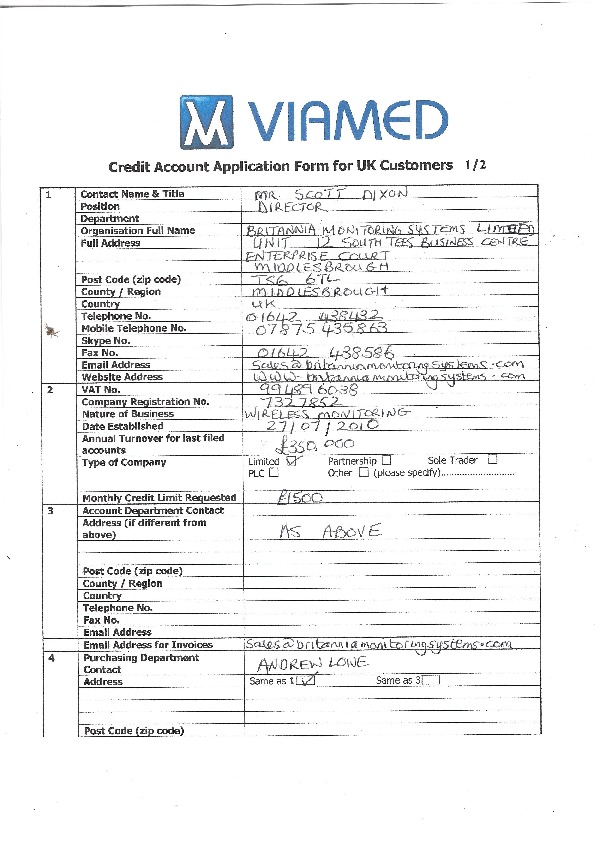 VIAMED
Credit Account Application Form for UK Customers 1/2
1 Contact Name & Title MR. SCOTT DIXON
Position DIRECTOR
Department
Organisation Full Name BRITANNIA MONITORING SYSTEMS LIMITED
Full Address UNIT 12 SOUTH TEES BUSINESS CENTRE
ENTERPRISE COURT
MIDDLESBROUGH
Post Code (zip code) TS6 6TL
County / Region MIDDLESBROUGH
Country UK
Telephone No. 01642 438432
Mobile Telephone No. 07875 435863
Skype No.
Fax No. 01642 438586
Email Address Sales@britanniamonitoringsystems.com
Website Address WWW.britanniamonitoringsystems.com
2 VAT No. 994896038
Company Registration No. 7327852
Nature of Business WIRELESS MONITORING
Date Established 27/07/2010
Annual Turnover for last filed
accounts £350,000
Type of Company Limited Partnership Sole Trader
PLC Other (please specify)..........................
Monthly Credit Limit Requested £1500
3 Account Department Contact
Address (if different from
above) AS ABOVE
Post Code (zip code)
County / Region
Country
Telephone No.
Fax No.
Email Address
Email Address for Invoices Sales@britanniamonitoringsystems.com
4 Purchasing Department
Contact ANDREW LOWE
Address Same as 1 Same as 3
Post Code (zip code)